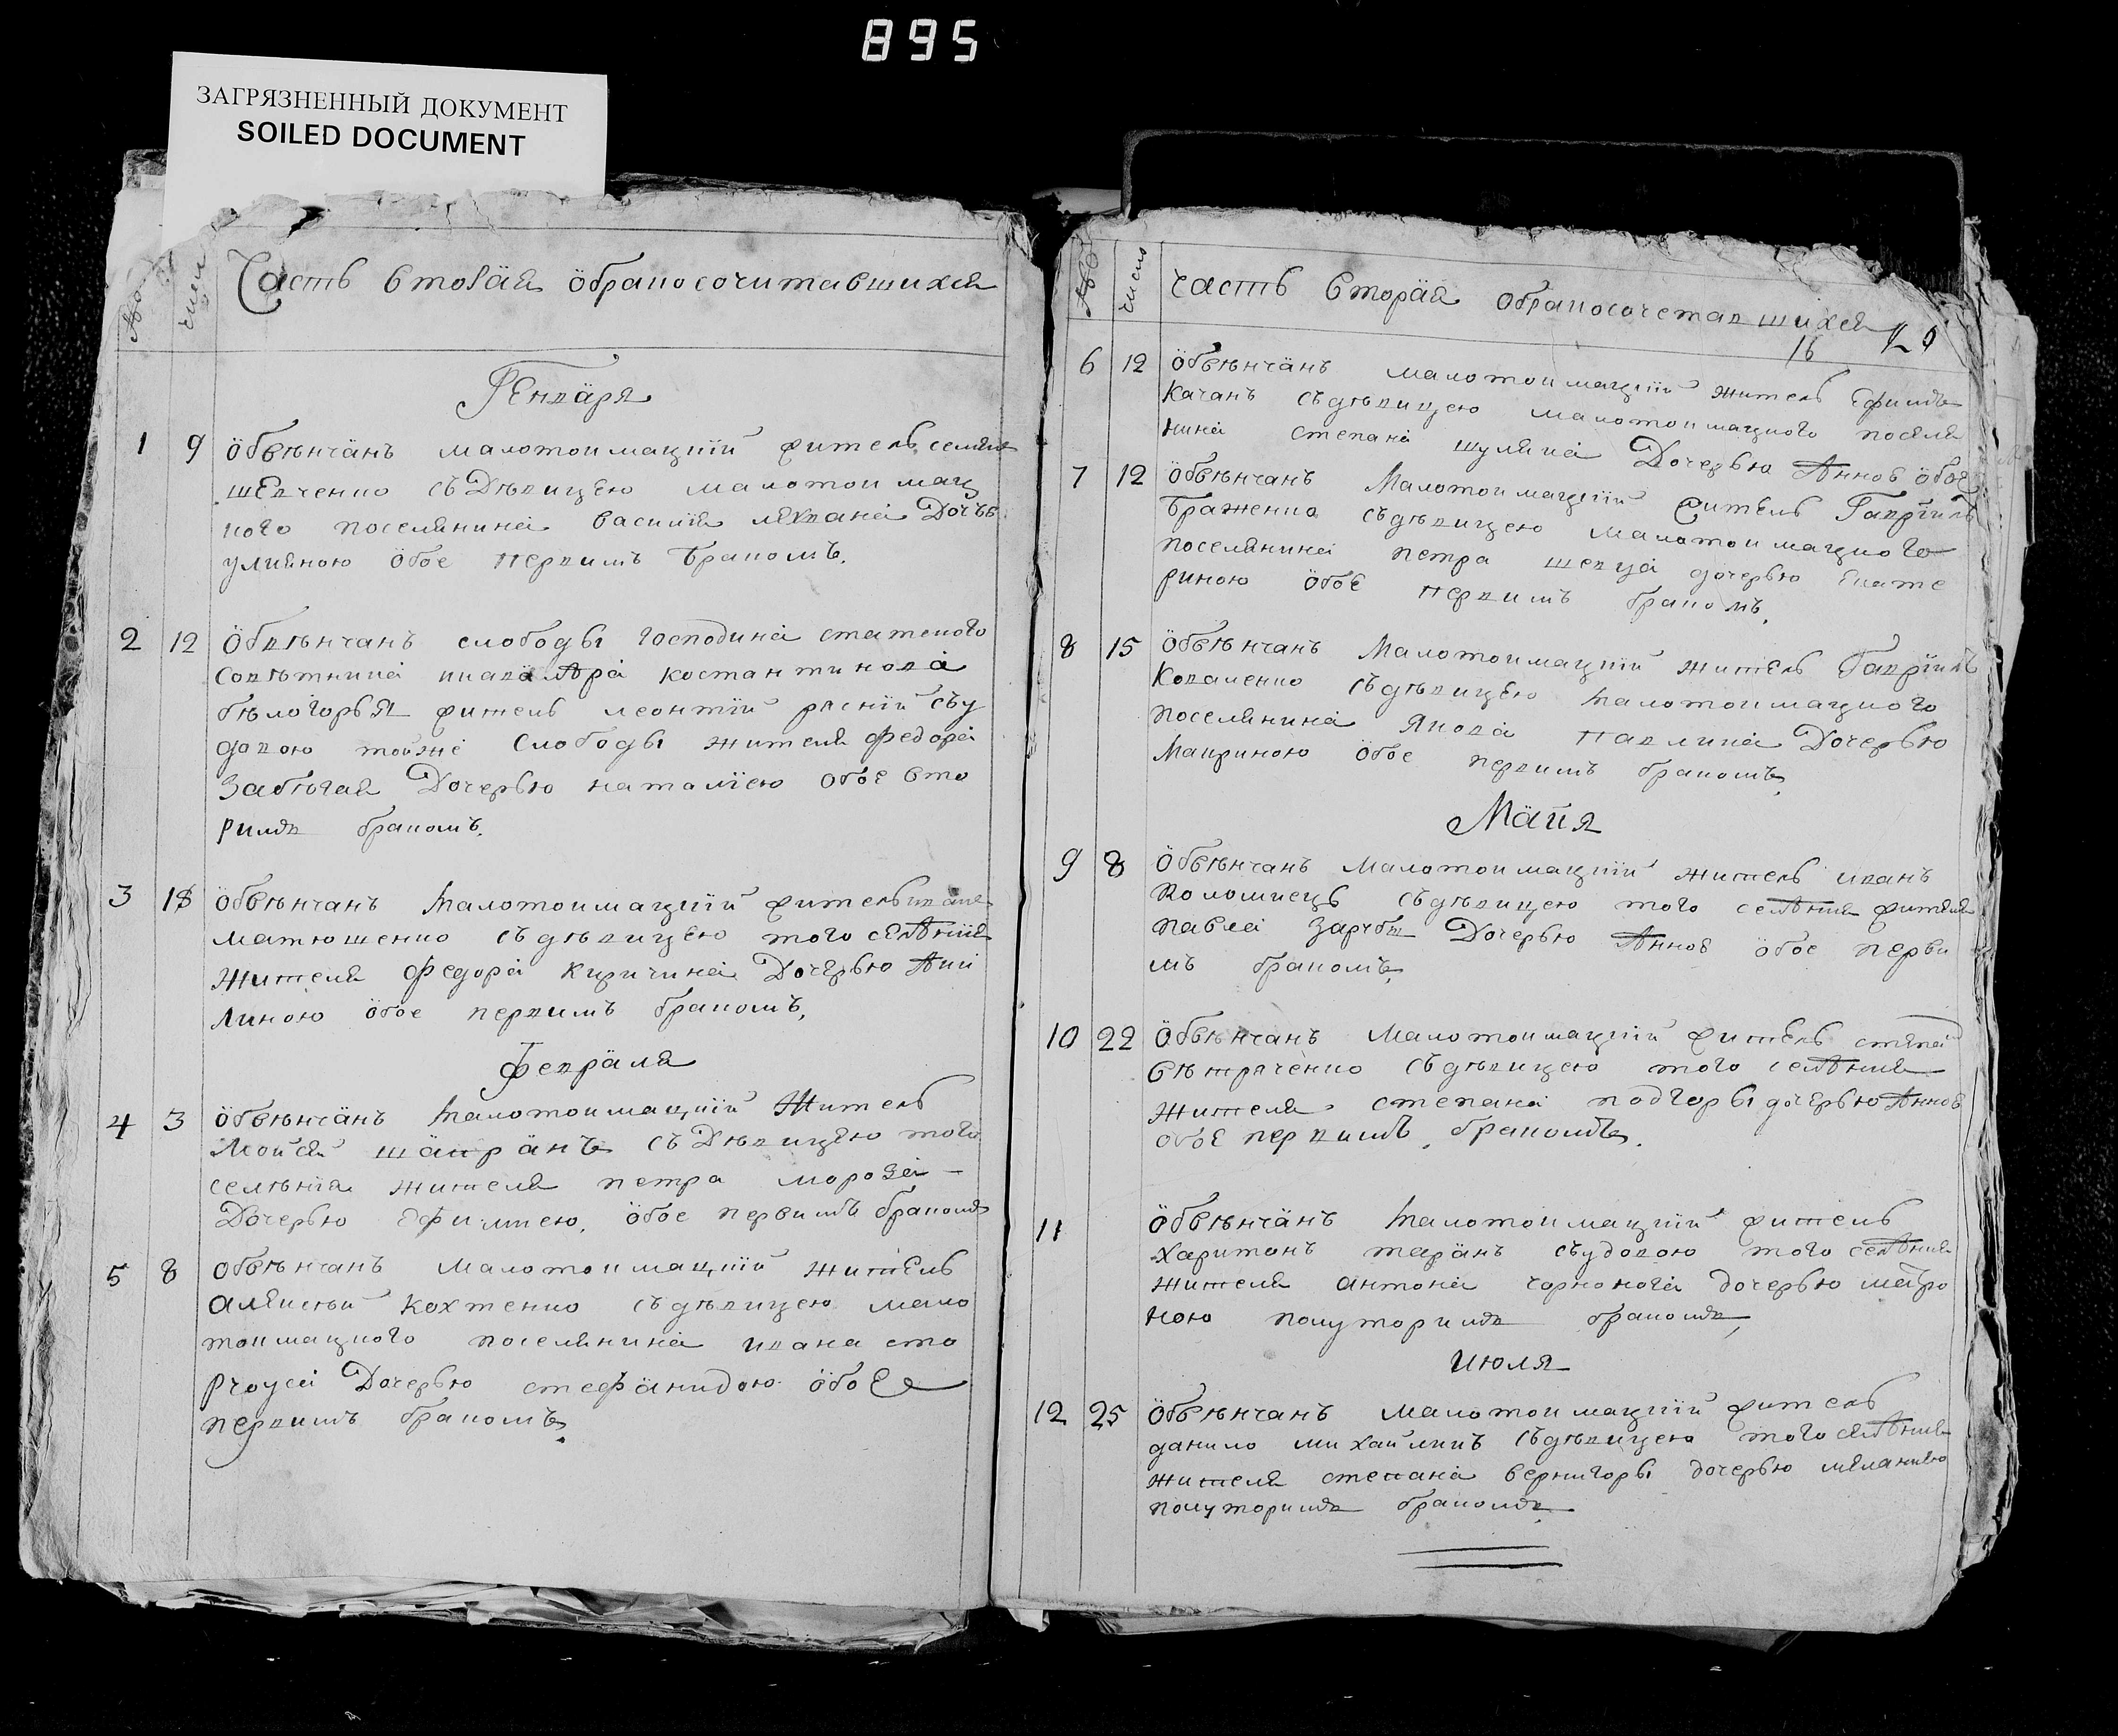 895
ЗАГРЯЗНЕННЫЙ ДОКУМЕНТ
SOILED DOCUMENT
число
Часть вторая обракосочитавшихся
Генваря
1 9 обвѣнчанъ малотокмацкій житель семенъ
шевченко съ Дѣвицею малотокмац
кого поселянина василия Дочьв
улияною обое первимъ бракомъ.
2 12 Обвѣнчанъ слободы господина статского
совѣтника костантинова
бѣлогорья житель леонтїй съу
довою тойже слободы жителя федора
забѣгая Дочерью наталїею обое вто
римъ бракомъ.
3 18 обвѣнчанъ малотокмацкїй житель
матюшенко съ дѣвицею того селѣния
жителя федора киричка Дочерью Аки
линою обое первимъ бракомъ,
Февраля
4 3 обвѣнчанъ малотокмацкїй Житель
Мойсей шапранъ съ Дѣвицею того
селѣнїя жителя петра мороза
Дочерью Ефимиею, обое первимъ бракомъ
5 8 обвѣнчанъ малотокмацкїй житель
алексѣй кохтенко съ дѣвицею мало
токмацкого поселянина ивана сто
Дочерью стефанидою обое
первимъ бракомъ.
число часть вторая обракосочетавшихся
16
6 12 обвѣнчанъ малотокмацкїй житель Ефимъ
Качанъ съдѣвицею малотокмацкого поселя
нина степана шуляка Дочерью Анною обое
7 12 обвѣнчанъ Малотокмацкїй житель Гаврїилъ
Браженко съдѣвицею малотокмацкого
поселянина петра шевца дочерью Екате
риною обое первимъ бракомъ,
8 15 обвѣнчанъ Малотокмацкїй житель Гаврїилъ
Коваленко съдѣвицею малотокмацкого
поселянина Якова павлика Дочерью
Мавриною обое первимъ бракомъ,
Майя
9 8 обвѣнчанъ Малотокмацкїй житель иванъ
коломиецъ съдѣвицею того селѣния жителя
павла зарубы Дочерью Анною обое перви
мъ бракомъ,
10 22 обвѣнчанъ Малотокмацкїй житель
вѣтраченко съдѣвицею того селѣния
жителя степана подгоры дочерью Анною
обое первимъ бракомъ.
11 обвѣнчанъ малотокмацкїй житель
харитонъ таранъ съудовою того селѣния
жителя антона чорнонога дочерью матро
ною полуторимъ бракомъ,
Июля
12 25 обвѣнчанъ малотокмацкїй житель
данило михайликъ съдѣвицею того селѣния
жителя степана вернигоры дочерью меланиею
полуторимъ бракомъ.